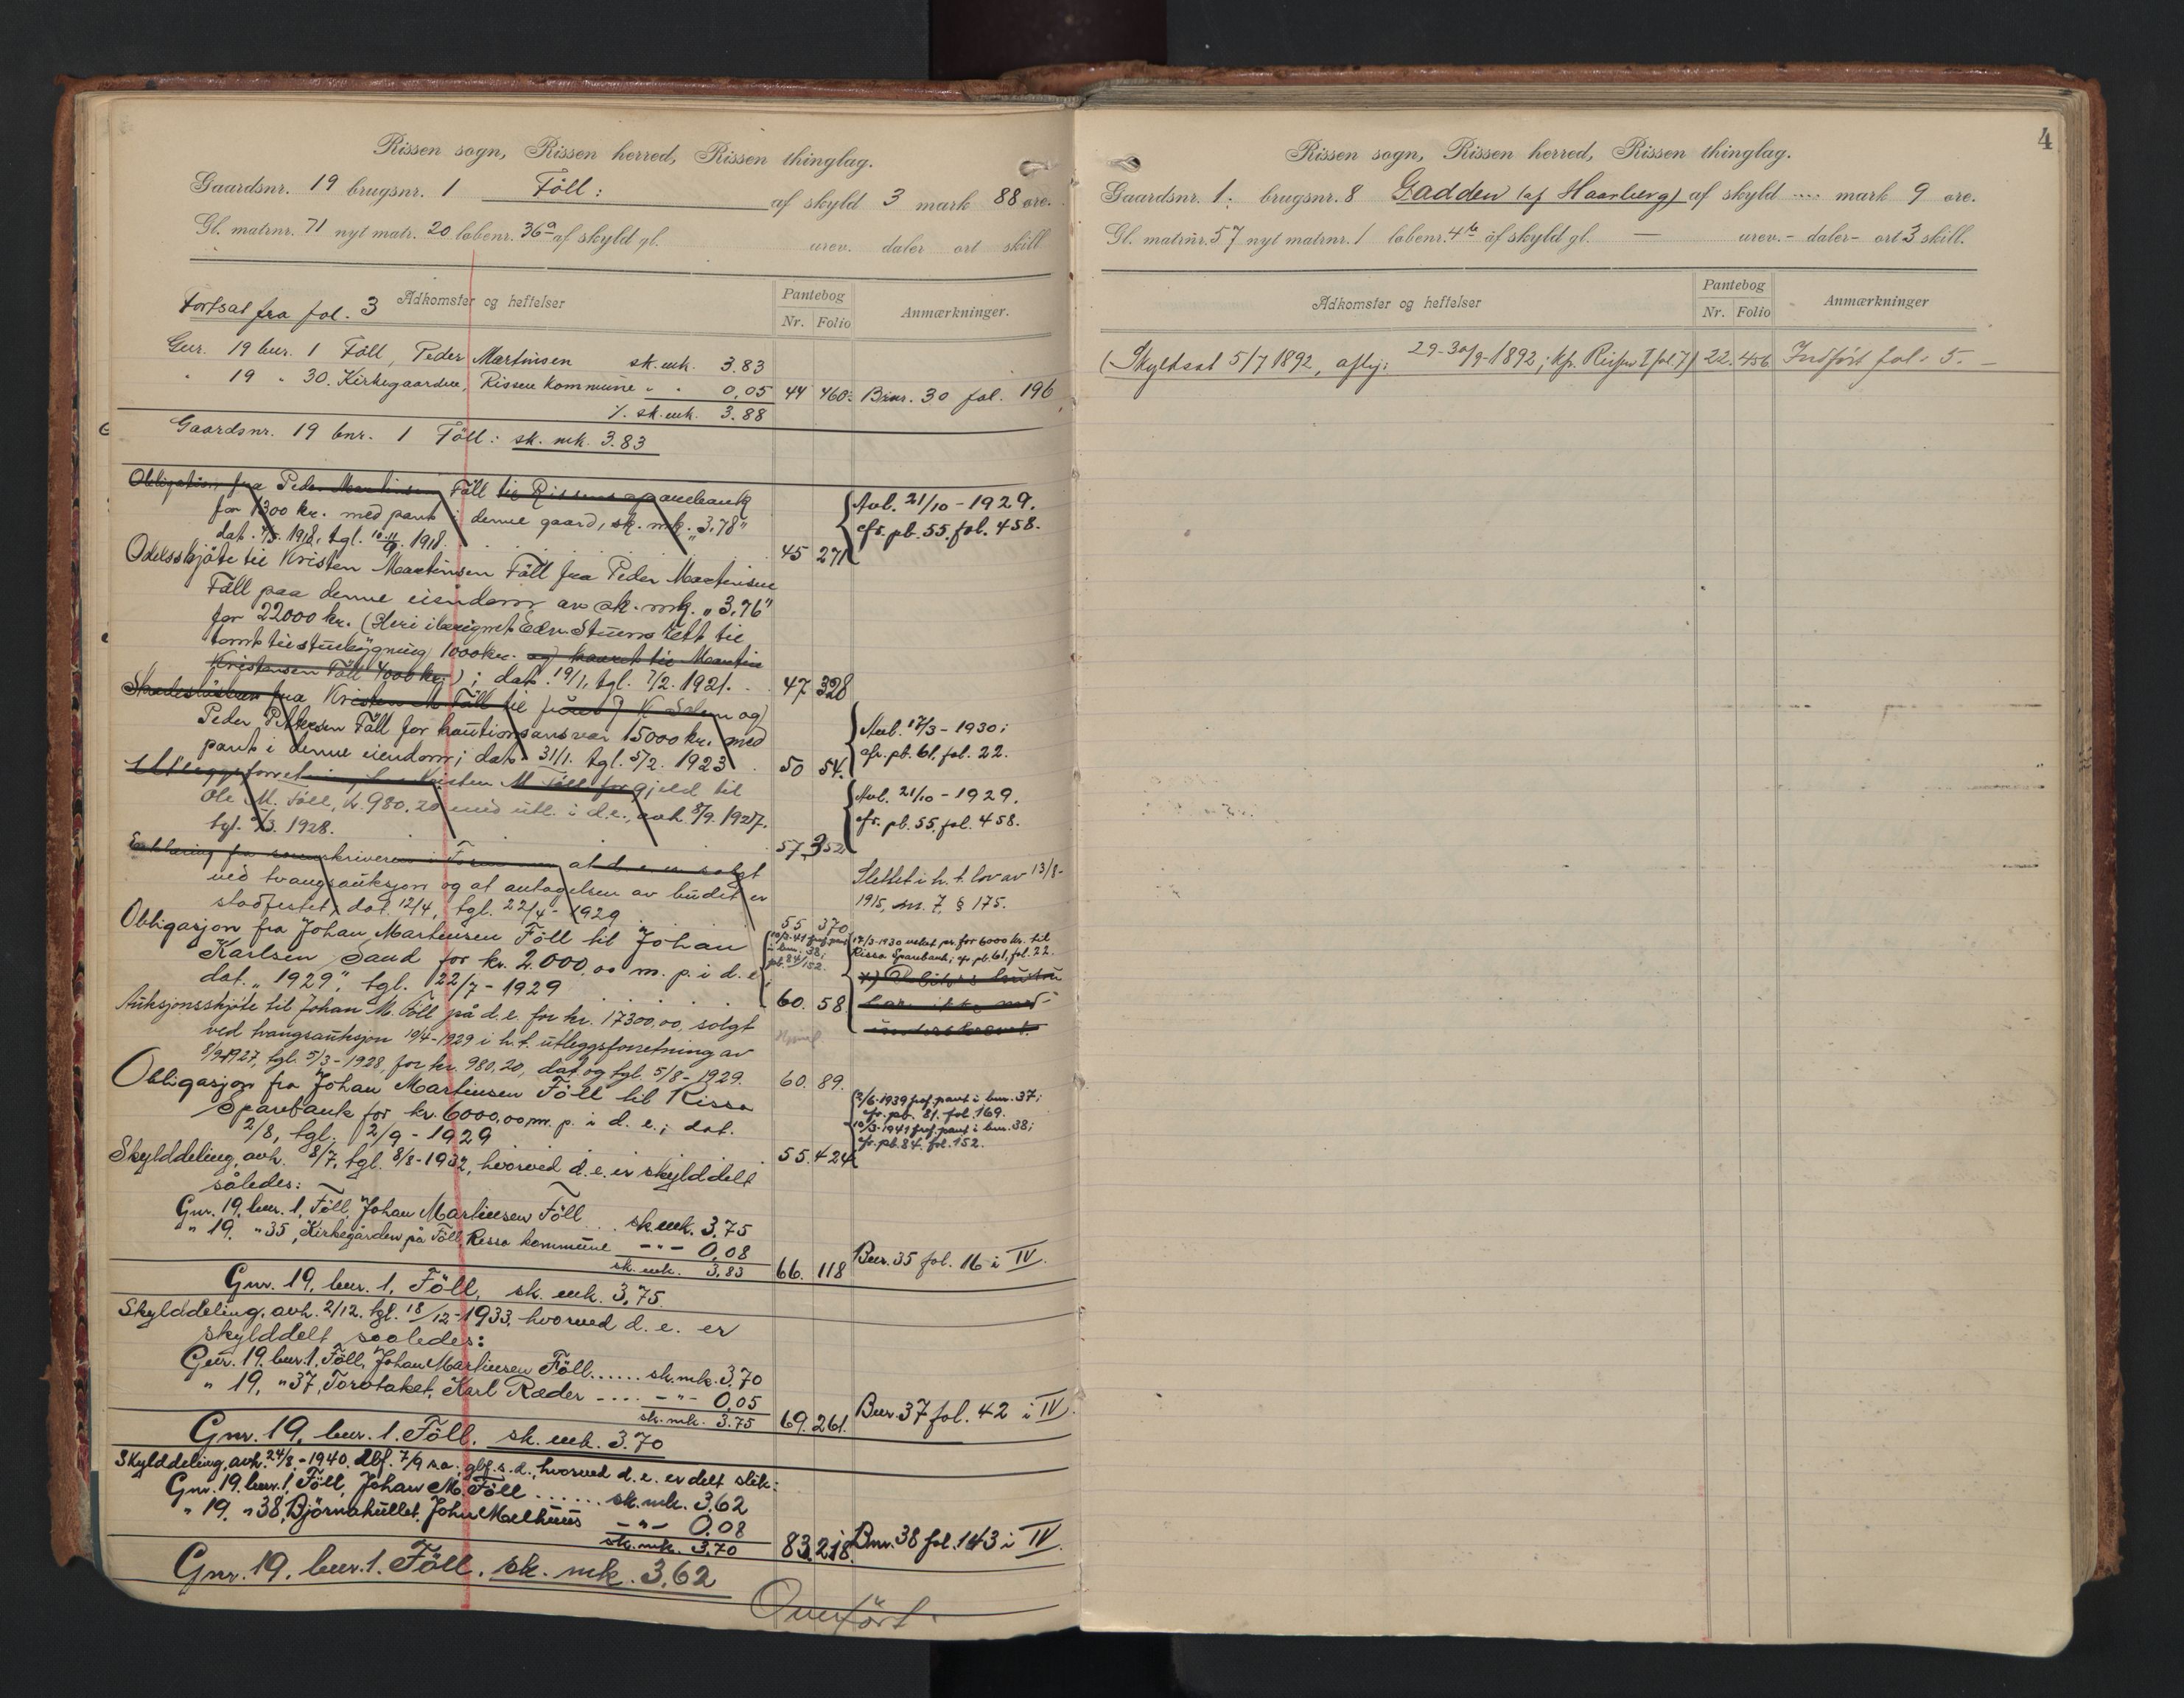 Rissen sogn, Rissen herred, Rissen thinglag.
Gaardsnr. 19 brugsnr. 1 Föll: af skyld 3 mark 88 øre.
Gl. matrnr. 71 nyt matr. 20 løbenr. 36a af skyld gl. urev. daler ort skill
Fortsat fra fol. 3 Adkomster og heftelser
Pantebog
Nr. Folio
Anmærkninger.
Gnr. 19 bnr. 1 Föll, Peder Martinsen sk. mk. 3.83
" 19 " 30. Kirkegaarden, Rissen kommune " " 0,05 44 460 Bnr. 30 fol. 196
sk. mk. 3.88
Gaardsnr. 19 bnr. 1 Föll: sk. mk. 3.83
Obligation fra Peder Martinsen Föll til Rissens sparebank
for 1300 kr. med pant i denne gaard, sk. mk. "3,78"
dat. 1918, tgl. 1918. 45 271
Avl. 21/10 - 1929.
cfr. pb. 55. fol. 458.
Odelsskjøte til Kristen Martinsen Föll fra Peder Martinsen
Föll paa denne eiendom av sk. mk. "3,76"
for 22000 kr. (Heri iberegnet Edv. Stuens rett til
tomt til stuebygning 1000 kr. og kaaret til Martin
Kristensen Föll 4000 kr.); dat. 19/1, tgl. 7/2. 1921. 47 328
Skadesløsbrev fra Kristen M Föll til K og
Peder Pettersen Föll for kautionsansvar 15000 kr. med
pant i denne eiendom; dat. 31/1. tgl. 5/2. 1923 50 54.
Avl. 17/3 - 1930;
cfr. pb. 61, fol. 22.
Utleggsforretning hos Kristen M Föll for gjeld til
Ole M. Föll, kr. 980,20 med utl. i d.e., avh. 8/9. 1927.
tgl. 5/3. 1928. 57 352
Avl. 21/10 - 1929.
cfr. pb. 55. fol. 458.
Erklæring fra sorenskriveren i Fosen om at d. e. er solgt
ved tvangsauksjon og at antagelsen av budet er
stadfestet, dat. 12/4, tgl. 22/4 - 1929 55 370
Slettet i h. t. lov av 13/8-
1915, nr. 7, § 175.
Obligasjon fra Johan Martinsen Föll til Johan
Karlsen Sand for kr. 2.000,00 m. p. i d. e.,
dat. "1929", tgl. 22/7 - 1929 60. 58
10/3-41 fraf. pant
i bnr. 38;
pb. 84/152.
17/3-1930 veket pr. for 6000 kr. til
Rissa Sparebank; cfr. pb. 61, fol. 22.
x) Debitors hustru
har ikke med-
underskrevet.
Auksjonsskjøte til Johan M. Föll på d.e. for kr. 17300,00, solgt
ved tvangsauksjon 10/4-1929 i h.t. utleggsforretning av
8/9-1927, tgl. 5/3-1928, for kr. 980,20, dat. og tgl. 5/8-1929. 60. 89.
Hjemmel
Obligasjon fra Johan Martinsen Föll til Rissa
Sparebank for kr. 6000,00, m. p. i d. e.; dat.
2/8, tgl. 2/9 - 1929 55. 424
2/6-1939 fraf. pant i bnr. 37;
cfr. pb. 81. fol. 169.
10/3-1941 fraf. pant i bnr. 38;
cfr. pb. 84. fol. 152.
Skylddeling, avh. 8/7, tgl. 8/8-1932, hvorved d. e. er skylddelt
således:
Gnr. 19, bnr. 1, Föll, Johan Martinsen Föll . . . sk. mk. 3,75
" 19, " 35, Kirkegården på Föll, Rissa kommune - " - 0,08
sk. mk. 3,83 66. 118 Bnr. 35 fol. 16 i IV.
Gnr. 19, bnr. 1, Föll, sk. mk. 3,75
Skylddeling, avh. 2/12, tgl. 18/12-1933, hvorved d. e. er
skylddelt saaledes:
Gnr. 19, bnr. 1, Föll, Johan Martinsen Föll...... sk. mk. 3,70
" 19, " 37, Torvtaket, Karl Ræder .... - " - 0,05
sk. mk. 3.75 69. 261. Bnr. 37 fol. 42 i IV.
Gnr. 19, bnr. 1. Föll, sk. mk. 3.70
Skylddeling, avh. 24/8,-1940, dbf. 7/9 s.a.; glf. s.d., hvorved d. e. er delt slik:
Gnr. 19, bnr. 1, Föll, Johan M. Föll ...... sk. mk. 3,62
" 19, " 38, Björnahullet, John Melhuus - " - 0,08
sk. mk. 3,70 83. 218. Bnr. 38 fol. 143 i IV.
Gnr. 19, bnr. 1. Föll, sk. mk. 3,62
Overført.
4
Rissen sogn, Rissen herred, Rissen thinglag.
Gaardsnr. 1. brugsnr. 8 Gadden (af Haarberg) af skyld .... mark 9 øre.
Gl. matrnr. 57 nyt matrnr. 1 løbenr. 4b af skyld gl. — urev. - daler - ort 3 skill.
Adkomster og heftelser
Pantebog
Nr. Folio
Anmærkninger
(Skyldsat 5/7 1892, aflj: 29-30/9-1892; kfr. Rissen I fol. 7) 22. 456 Indført fol. 5. —